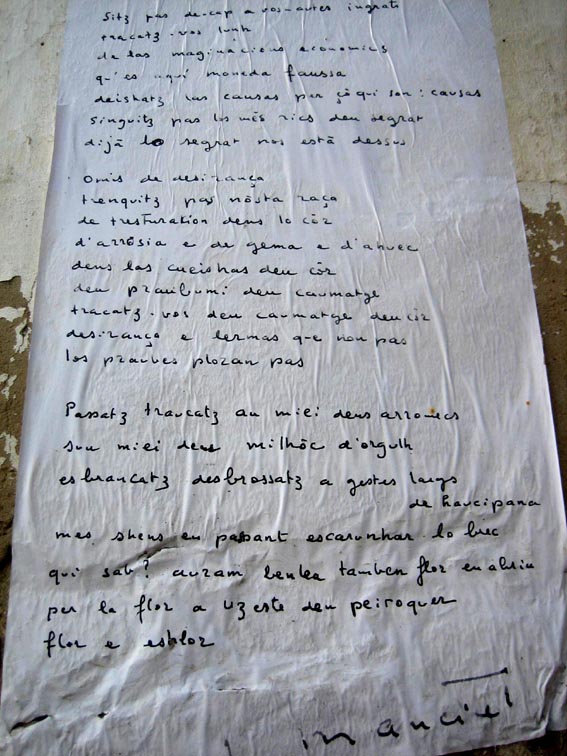 sitz pas de.cap a vos-autes ingrats
tracatz-vos lunh
de las maginacious economics
qu'es aqui moneda faussa
deishatz las causas per çò qui son: causas
singuitz pas los mès rics deu segrat
dijà lo segrat nos està dessus
Omis de desirança
trenquitz pas nòsta raça
de tresturation dens lo còr
d'arrósia e de gema e d'ahuec
dens las cueishas deu còr
deu praubumi deu caumatge
tracatz-vos deu caumatge deu còr
desirança e lermas que non pas
los praubes plozan pas
Passatz traucatz au miei dens arromecs
suu miei deus milhòc d'orgulh
esbrancatz desbrossatz a gestes largs
de haucipana
mes shens en passant escarunhar lo brec
qui sab? auram benlea tamben flor en abriu
per la flor a uzeste deu peiroquer
flor e eshlor
manciet